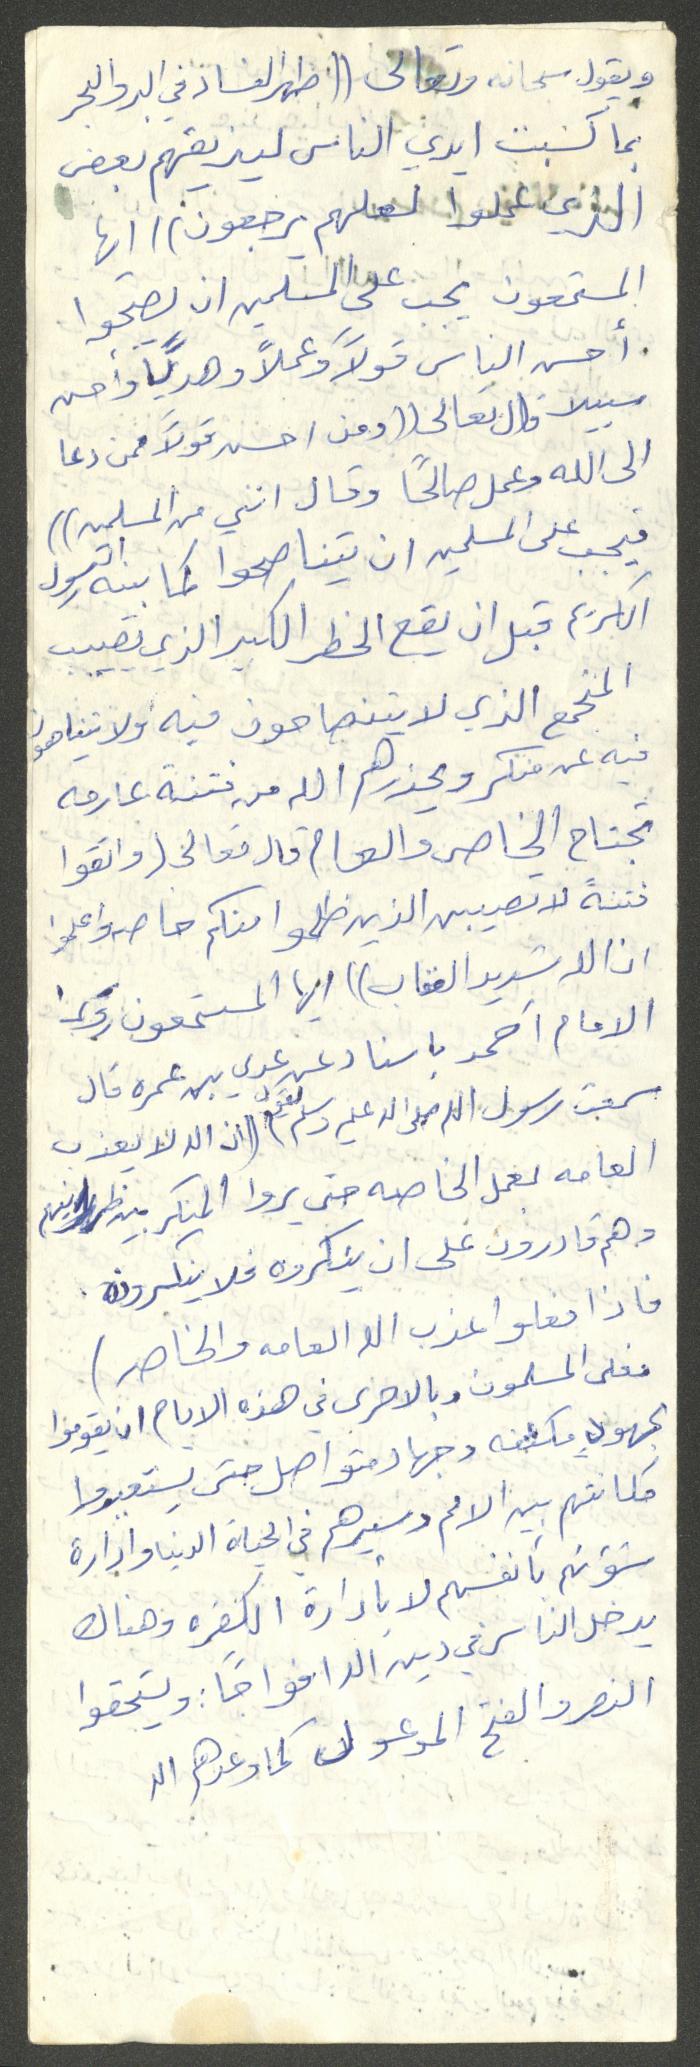 ويقول سبحانه وتعالى ((ظهر الفساد في البر والبحر
بما كسبت ايدي الناس ليذيقهم بعض
الذي عملوا لعلهم يرجعون)) ايها
المستمعون يجب على المسلمين ان يصبحوا
أحسن الناس قولاً وعملاً وهدياً وأحسن
سبيلا قال تعالى ((ومن احسن قولاً ممن دعا
الى الله وعمل صالحًا وقال انني من المسلمين))
فيجب على المسلمين ان يتناصحوا كما بينه الرسول
الكريم قبل ان يقع الخطر الكبير الذي يصيب
المجتمع الذي لا يتناصحون فيه ولا يتناهون
فيه عن منكر ويحذرهم الله من فتنة عارمه
تجتاح الخاص والعام قال تعالى (واتقوا
فتنةً لا تصيبن الذين ظلموا منكم خاصه واعلموا
ان الله شديد العقاب)) ايها المستمعون روى
الامام أحمد باسناد عن عدي بن عميره قال
سمعت رسول الله صلى الله عليه وسلم يقول ((ان الله لا يعذب
العامه بعمل الخاصه حتى يروا المنكر بين ظهرانيهم
وهم قادرون على ان ينكروه فلا ينكرونه
فاذا فعلوا عذب الله العامه والخاصه)
فعلى المسلمون وبالاحرى في هذه الايام ان يقوموا
بجهود مكثفه وجهاد متواصل حتى يستعيدوا
مكانتهم بين الامم وسيرهم في الحياة الدنيا وادارة
شؤنهم بأنفسهم لا بأدارة الكفره وهناك
يدخل الناس في دين الله افواجًا: ويستحقوا
النصر والفتح الموعود كما وعدهم الله